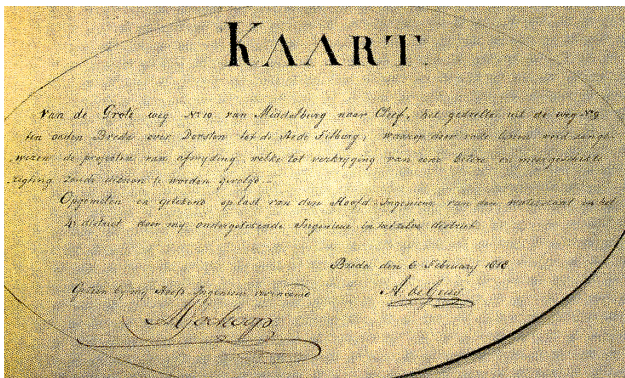 KAART.
Van de Grote weg No 10 van Middelburg naar Cleef, het gedeelte uit de weg No 9
ten onden Breda over Dorsten tot de Stede Tilburg; waarop door rode lijnen word aange-
wezen de projecten van afwyding, welke tot verkryging van eene betere en meer geschikte
rigting zoude dienen te worden gevolgd.
Opgemeten en getekend op last van den Hoofd-Ingenieur van den waterstaat in het
4e district door my ondergetekende Ingenieur in hetzelve district.
Breda den 6 February 1818
Gezien by my Hoofd Ingenieur voornoemd
A. de Geus